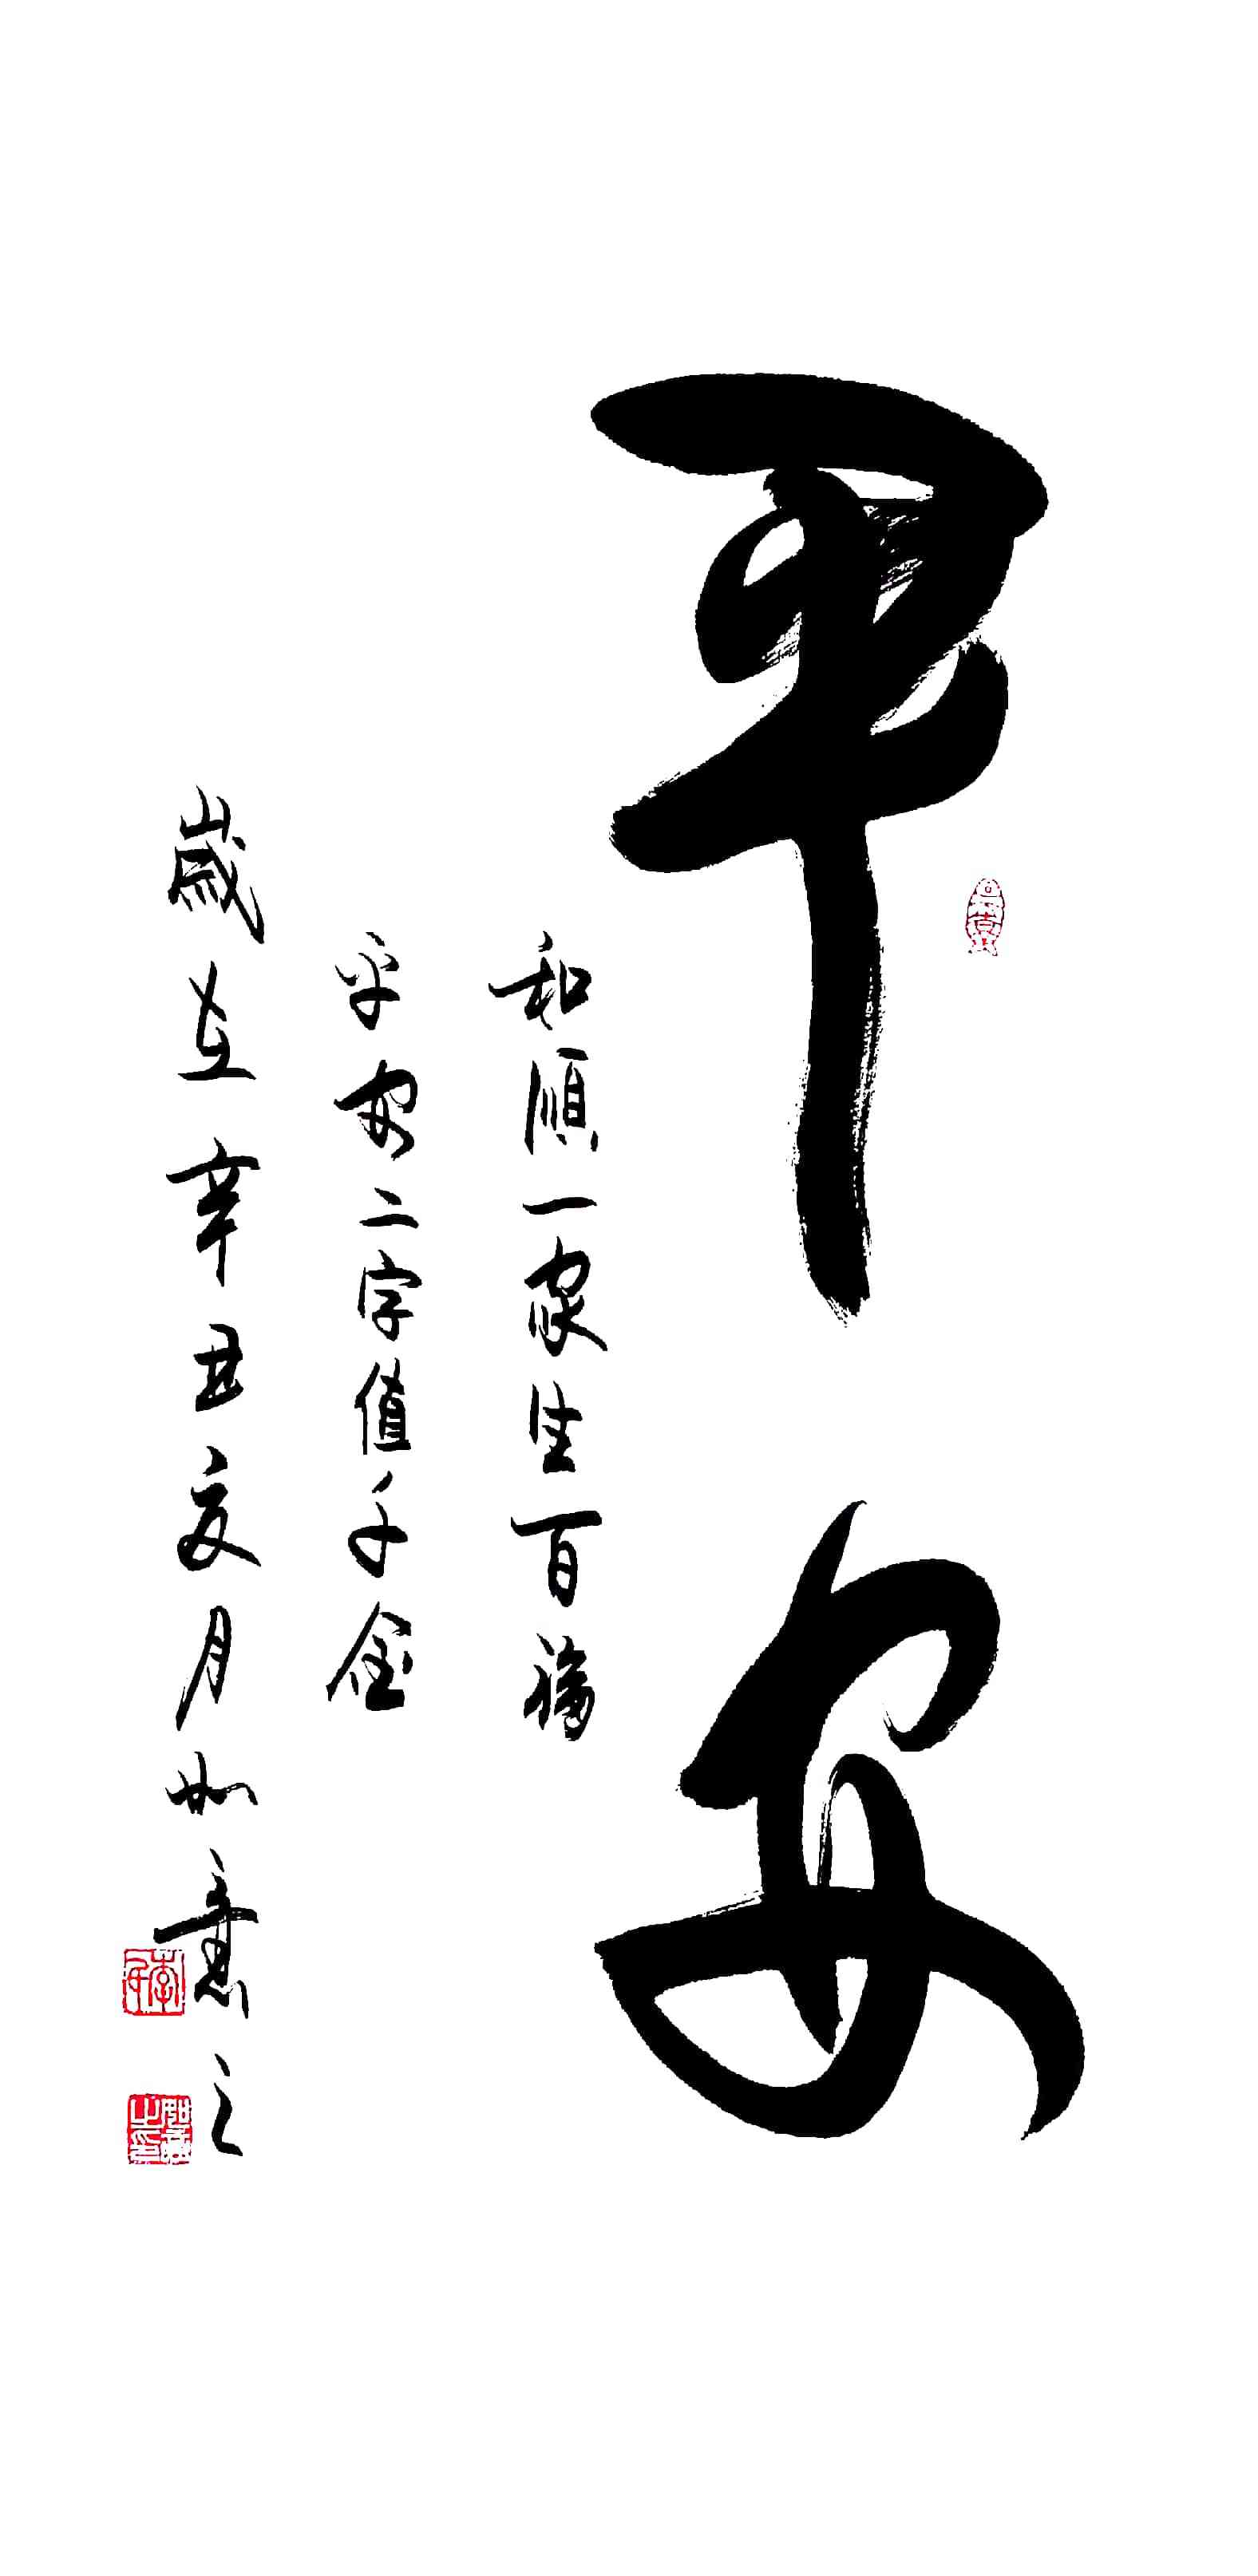 平安
和順一家生百福
平安二字值千金
歲在辛丑夏月如意之